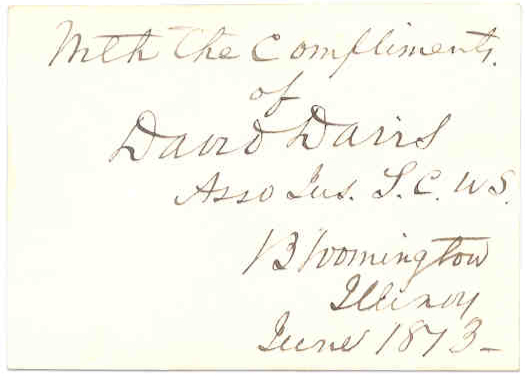 With the Compliments.
of
David Davis
Asso Jus. S. C. U S.
Bloomington
Illinois
June 1873-